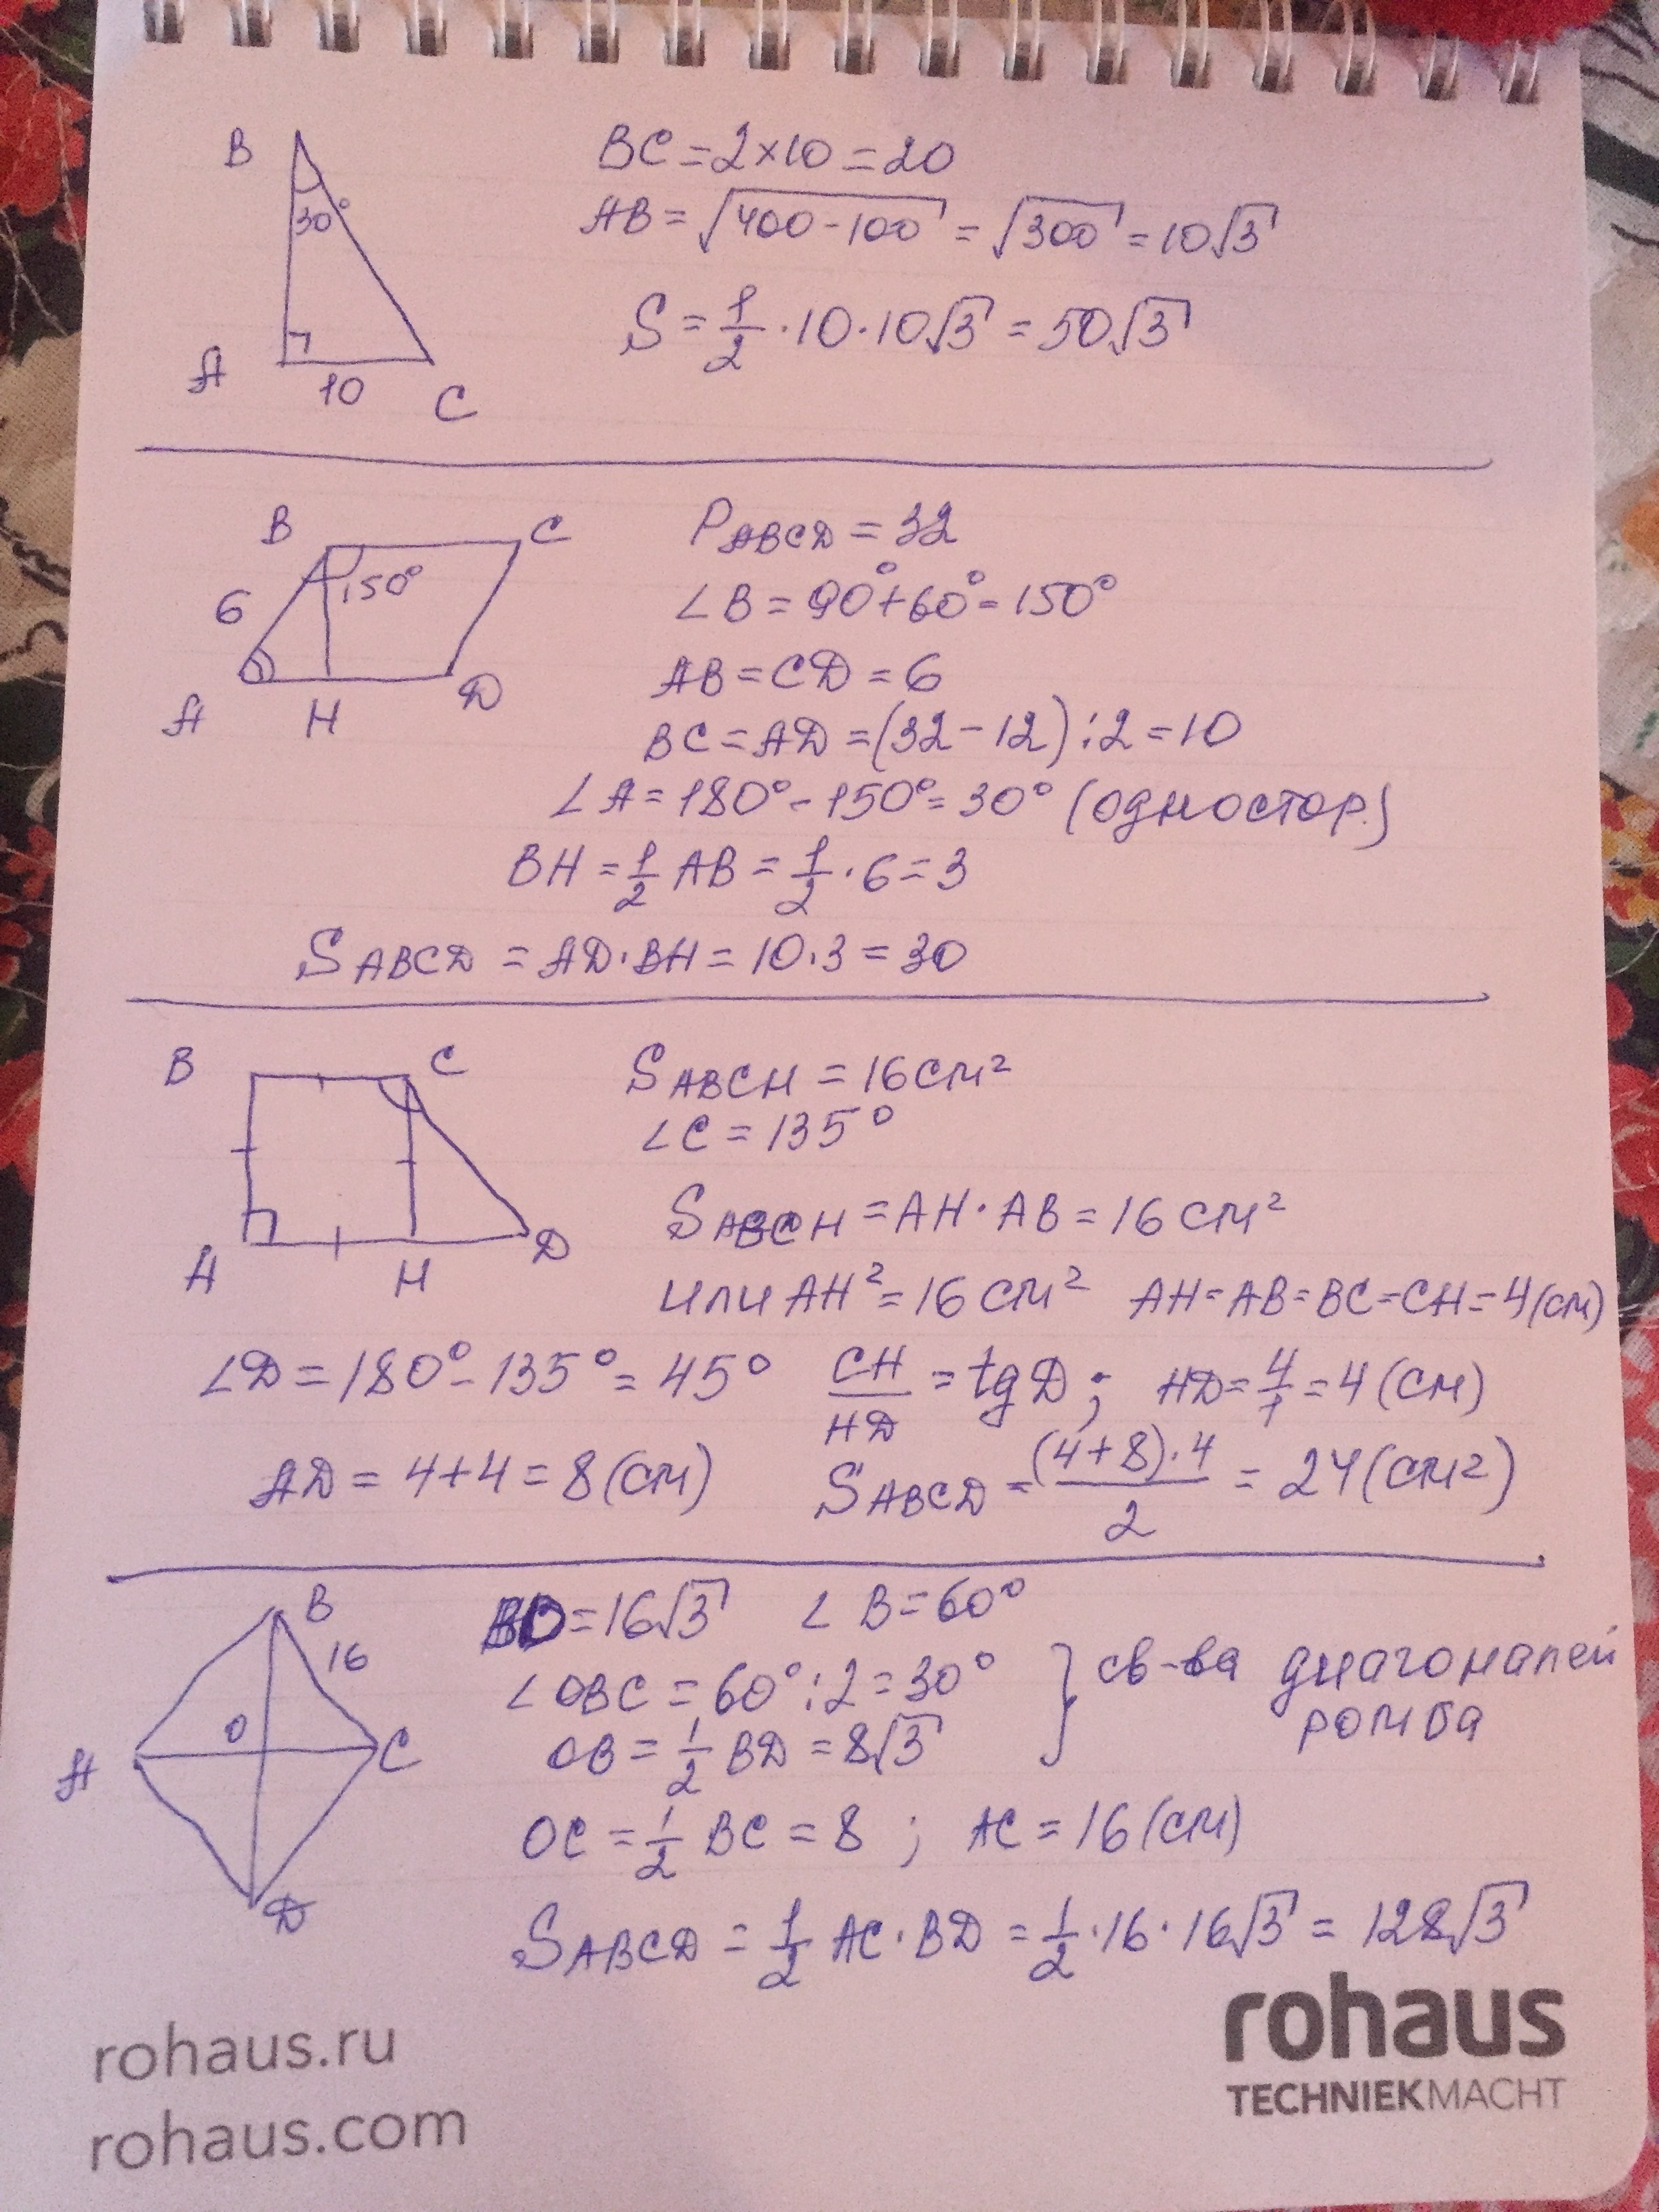 B
30°
A
10
C
BC = 2×10 = 20
AB = √400-100 = √300 = 10√3
S = 1/2 · 10 · 10√3 = 50√3
B
C
150°
6
A
H
D
P ABCD = 32
∠B = 90°+60° = 150°
AB = CD = 6
BC = AD = (32-12):2 = 10
∠A = 180° - 150° = 30° (одностор.)
BH = 1/2 AB = 1/2 · 6 = 3
S ABCD = AD · BH = 10 · 3 = 30
B
C
A
H
D
S ABCH = 16 см²
∠C = 135°
S ABCH = AH · AB = 16 см²
или AH² = 16 см² AH = AB = BC = CH = 4 (см)
∠D = 180° - 135° = 45° CH/HD = tg D ; HD = 4/1 = 4 (см)
AD = 4+4 = 8 (см) S ABCD = (4+8)·4/2 = 24 (см²)
B
16
O
A
C
D
BD = 16√3 ∠B = 60°
∠OBC = 60°:2 = 30° } св-ва диагоналей
OB = 1/2 BD = 8√3 ромба
OC = 1/2 BC = 8 ; AC = 16 (см)
S ABCD = 1/2 AC · BD = 1/2 · 16 · 16√3 = 128√3
rohaus.ru
rohaus.com
rohaus
TECHNIEKMACHT